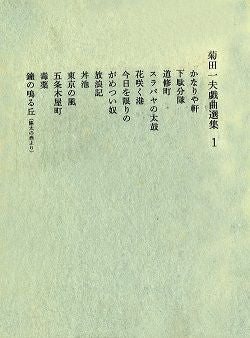 菊田一夫戯曲選集 1
かなりや軒
下駄分隊
道修町
スラバヤの太鼓
花咲く港
今日を限りの
がめつい奴
放浪記
丼池
東京の風
五条木屋町
毒薬
鐘の鳴る丘